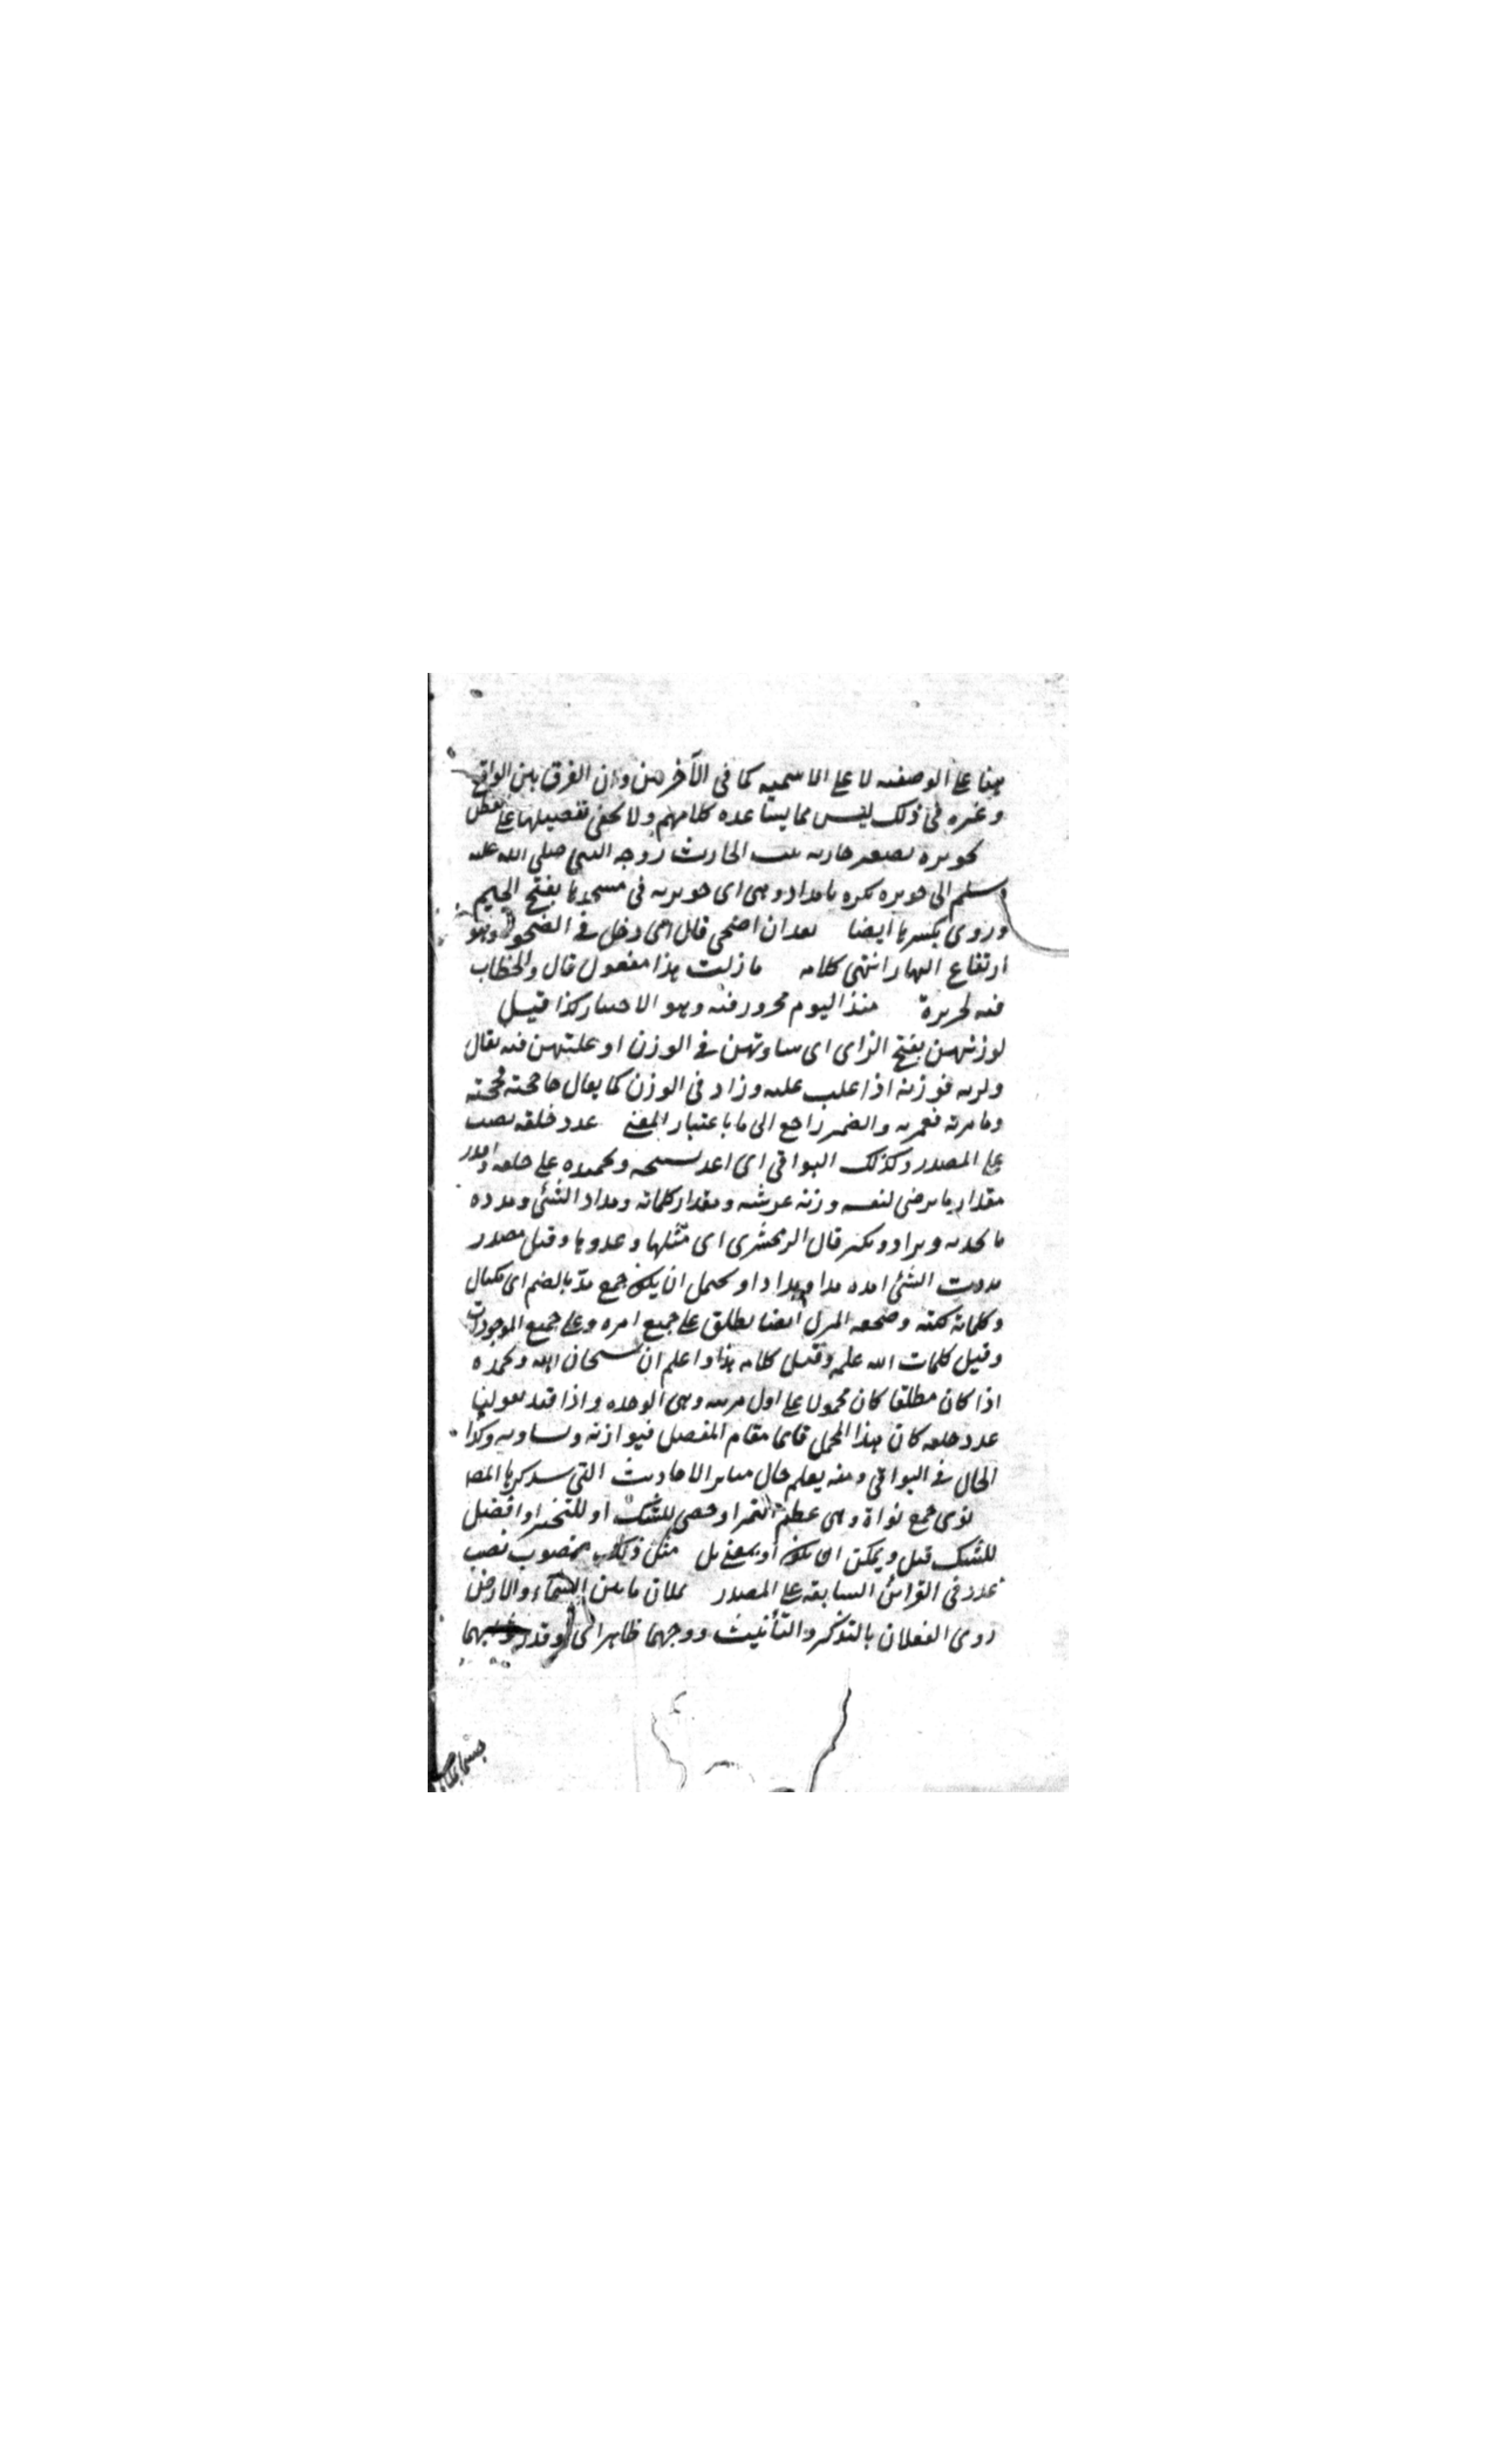 هنا على الوصفيه لا على الاسميه كما فى الآخرين وان الفرق بين الواقع
وغيره فى ذلك ليس مما يساعده كلامهم ولا يخفى تفصيلها على
لجويرية تصغير جارية بنت الحارث زوجه النبي صلى الله عليه
وسلم الى جويرية بكرة بامداد وهى اى جويرية فى مسجدها بفتح الجيم
وروى بكسرها ايضا بعد ان اضحى قال اى دخل فى الضحوة وهو
ارتفاع النهار انتهى كلامه ما زلت هذا مفعول قال والخطاب
فيه لجويرية منذ اليوم مجرور فيه وهو الاختيار كذا قيل
لوزنتهن بفتح الزاى اى ساوتهن فى الوزن او غلبتهن فيه يقال
وازنه فوزنه اذا غلب عليه وزاد فى الوزن كما يقال حاججته فحججته
والضمير راجع الى ما باعتبار المعنى عدد خلقه نصب
على المصدر وكذلك البواقى اى اعد تسبيحه وتحميده على خلقه
مقدار ما يرضى لنفسه وزنة عرشه ومقدار كلماته ومداد الشئ ومدده
ما يمد به ويزاد ويكثر قال الزمخشرى اى مثلها وعددها وقيل مصدر
مددت الشئ امده مدا ومدادا ويحتمل ان يكون جمع مدّ بالضم اى مكيال
وكلماته كتبه وصحفه المنزل ايضا يطلق على جميع امره وعلى جميع الموجودات
وقيل كلمات الله علمه وقيل كلامه هذا واعلم ان سبحان الله وبحمده
اذا كان مطلقا كان محمولا على اول مرتبه وهى الوحده واذا قيد بقولنا
عدد خلقه كان هذا المجمل قائما مقام المفصل فيوازنه ويساويه وكذا
الحال فى البواقى ومنه يعلم حال سائر الاحاديث التى سيذكرها المص
نوى جمع نواة وهى عظم التمر او حصى للشك او للتخيير او افضل
للشك قيل ويمكن ان يكون او بمعنى بل مثل ذلك منصوب نصب
عدد فى القرائن السابقه على المصدر تملآن ما بين السماء والارض
روى الفعلان بالتذكير والتأنيث ووجهما ظاهر اى وقدر